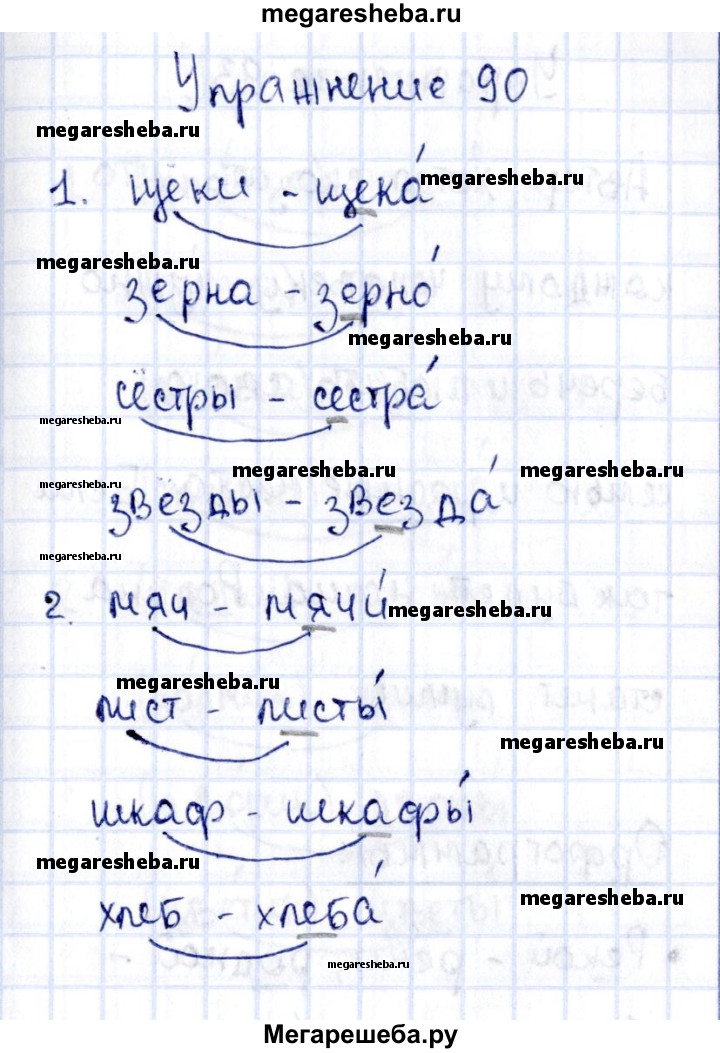 megaresheba.ru
Упражнение 90
megaresheba.ru
1. щёки - щека́ megaresheba.ru
megaresheba.ru
зёрна - зерно́
megaresheba.ru
сёстры - сестра́
megaresheba.ru
megaresheba.ru megaresheba.ru
megaresheba.ru
звёзды - звезда́
megaresheba.ru
2. мяч - мячи́ megaresheba.ru
megaresheba.ru
лист - листы́
megaresheba.ru
шкаф - шкафы́
megaresheba.ru
megaresheba.ru
хлеб - хлеба́
megaresheba.ru
Мегарешеба.ру